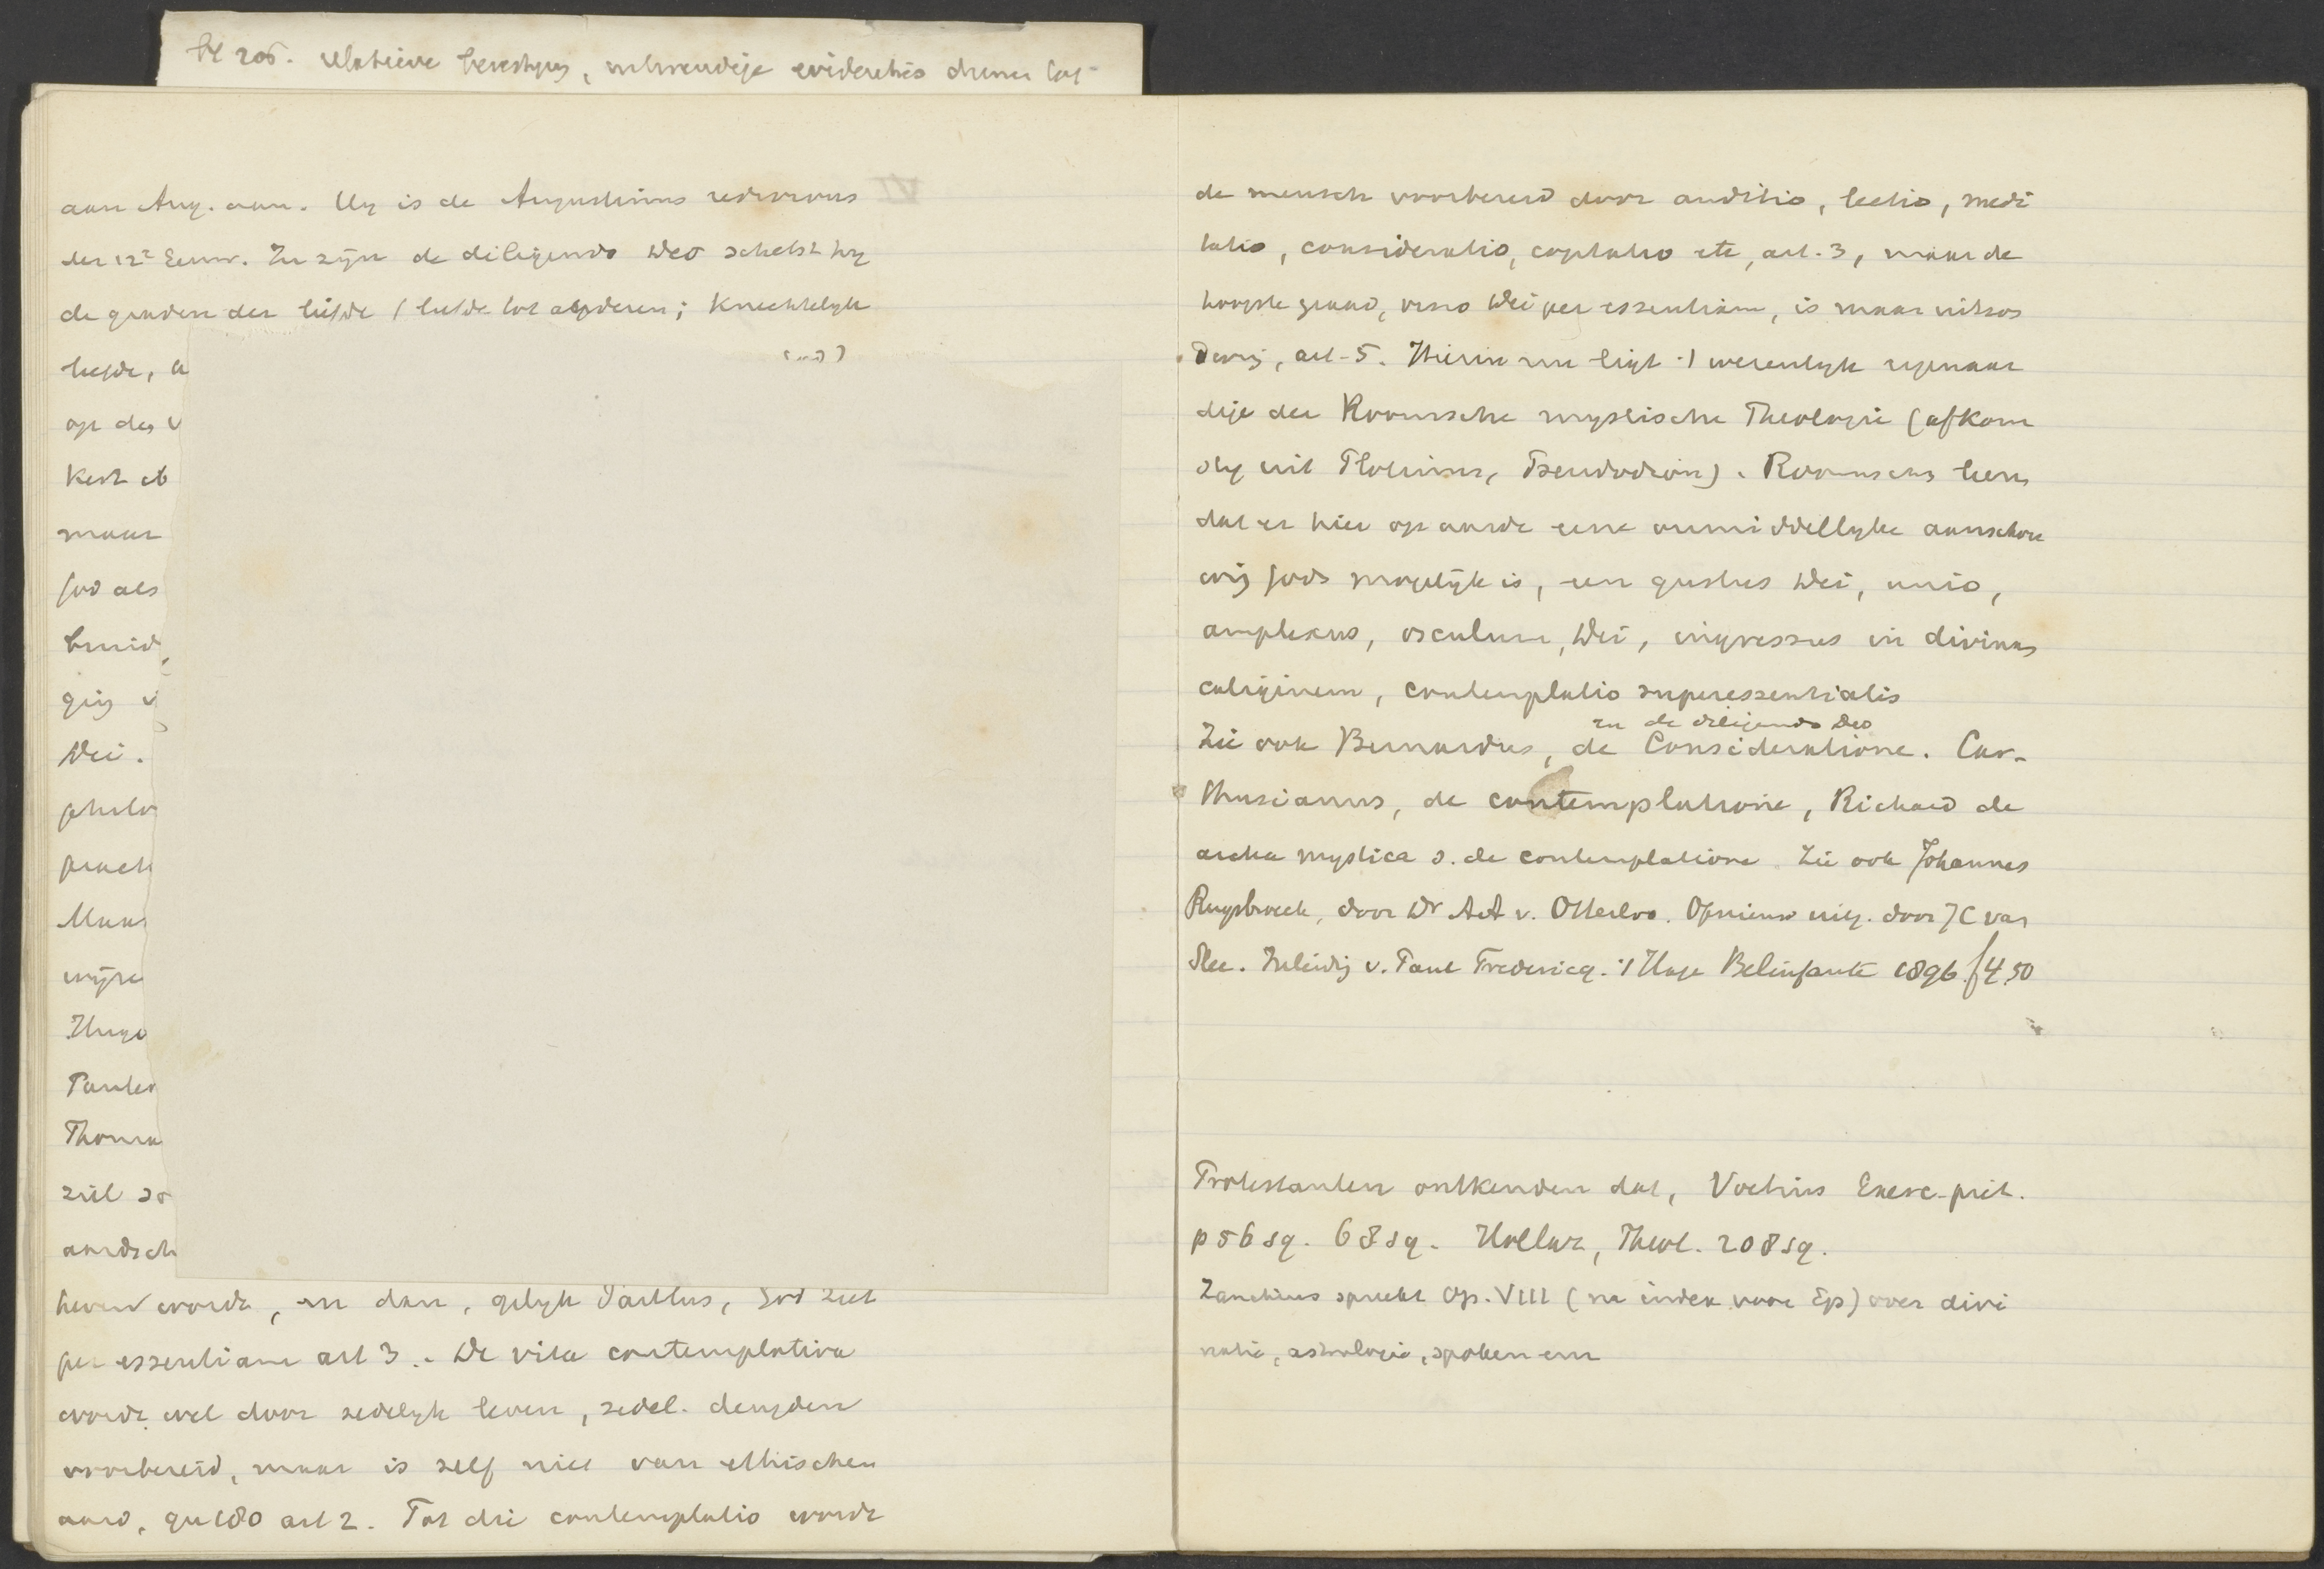 bl 206. relatieve
aan Aug. aan. Hij is de Augustinus redivivus
der 12e Eeuw. In zijn de diligendo Deo schetst hij
de graden der liefde (liefde tot anderen; Knechtelijk
liefde,
op den
Kent
maar
God als
bruid,
ging
Dei.
philo
prach
Maar
wijze
Hugo
Tauler
Thoma
ziel zo
aardsch
heven worde, en dan, gelijk Paullus, God ziet
per essentiam art 3. De vita contemplativa
wordt wel door zedelijk leven, zedel. deugden
voorbereid, maar is zelf niet van ethischen
aard, qu 180 art 2. Tot die contemplatio wordt
de mensch voorbereid door auditio, lectio, medi
tatio, consideratio, cogitatio etc, art. 3, maar de
hoogste graad, visio Dei per essentiam, is maar uitzon
dering, art. 5. Hierin nu ligt 't wezenlijk eigenaar
dige der Roomsche mystische Theologie (afkom
stig uit Plotinus, Pseudodion). Roomschen leeren
dat er hier op aarde eene onmiddellijke aanschou
wing Gods mogelijk is, een gustus Dei, unio,
amplexus, osculum, Dei, ingressus in divinam
caliginem, contemplatio superessentialis
en de diligendo Deo
Zie ook Bernardus, de Consideratione. Car-
thusianus, de contemplatione, Richard de
archa mystica s. de contemplatione. Zie ook Johannes
Ruysbroeck, door Dr A A v. Otterloo. Opnieuw uitg. door J C van
Slee. Inleiding v. Paul Fredericq. 's Hage Belinfante 1896. f 4.50
Protestanten ontkenden dat, Voetius Exerc. piet.
p 56 sq. 68 sq. Hollaz, Theol. 208 sq.
Zanchius spreekt Op. VIII (na index voor Ep) over divi
natie, astrologie, spoken enz